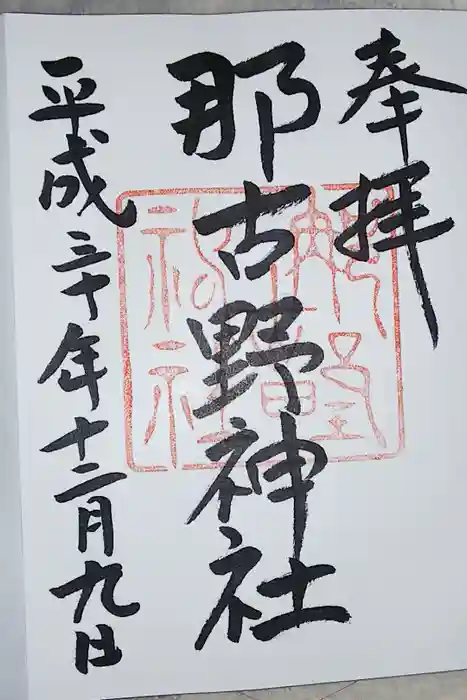 奉拝
那古野神社
平成三十年十二月九日